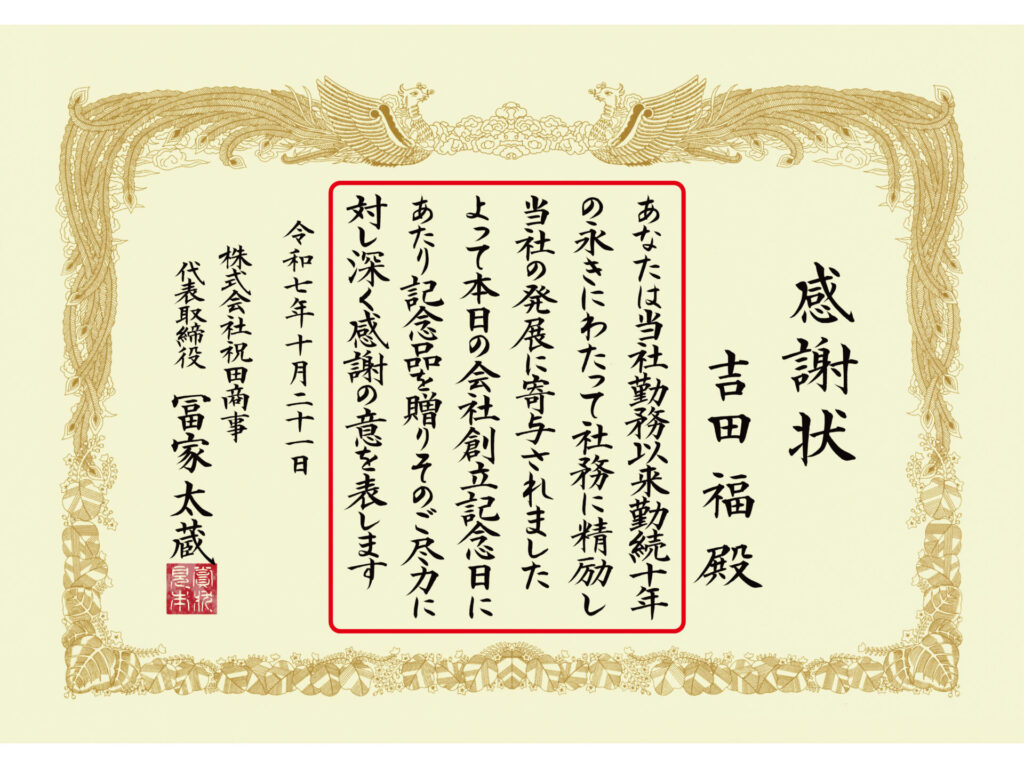 感謝状
吉田福殿
あなたは当社勤務以来勤続十年
の永きにわたって社務に精励し
当社の発展に寄与されました
よって本日の会社創立記念日に
あたり記念品を贈りそのご尽力に
対し深く感謝の意を表します
令和七年十月二十一日
株式会社祝田商事
代表取締役 冨家太蔵
賞状見本